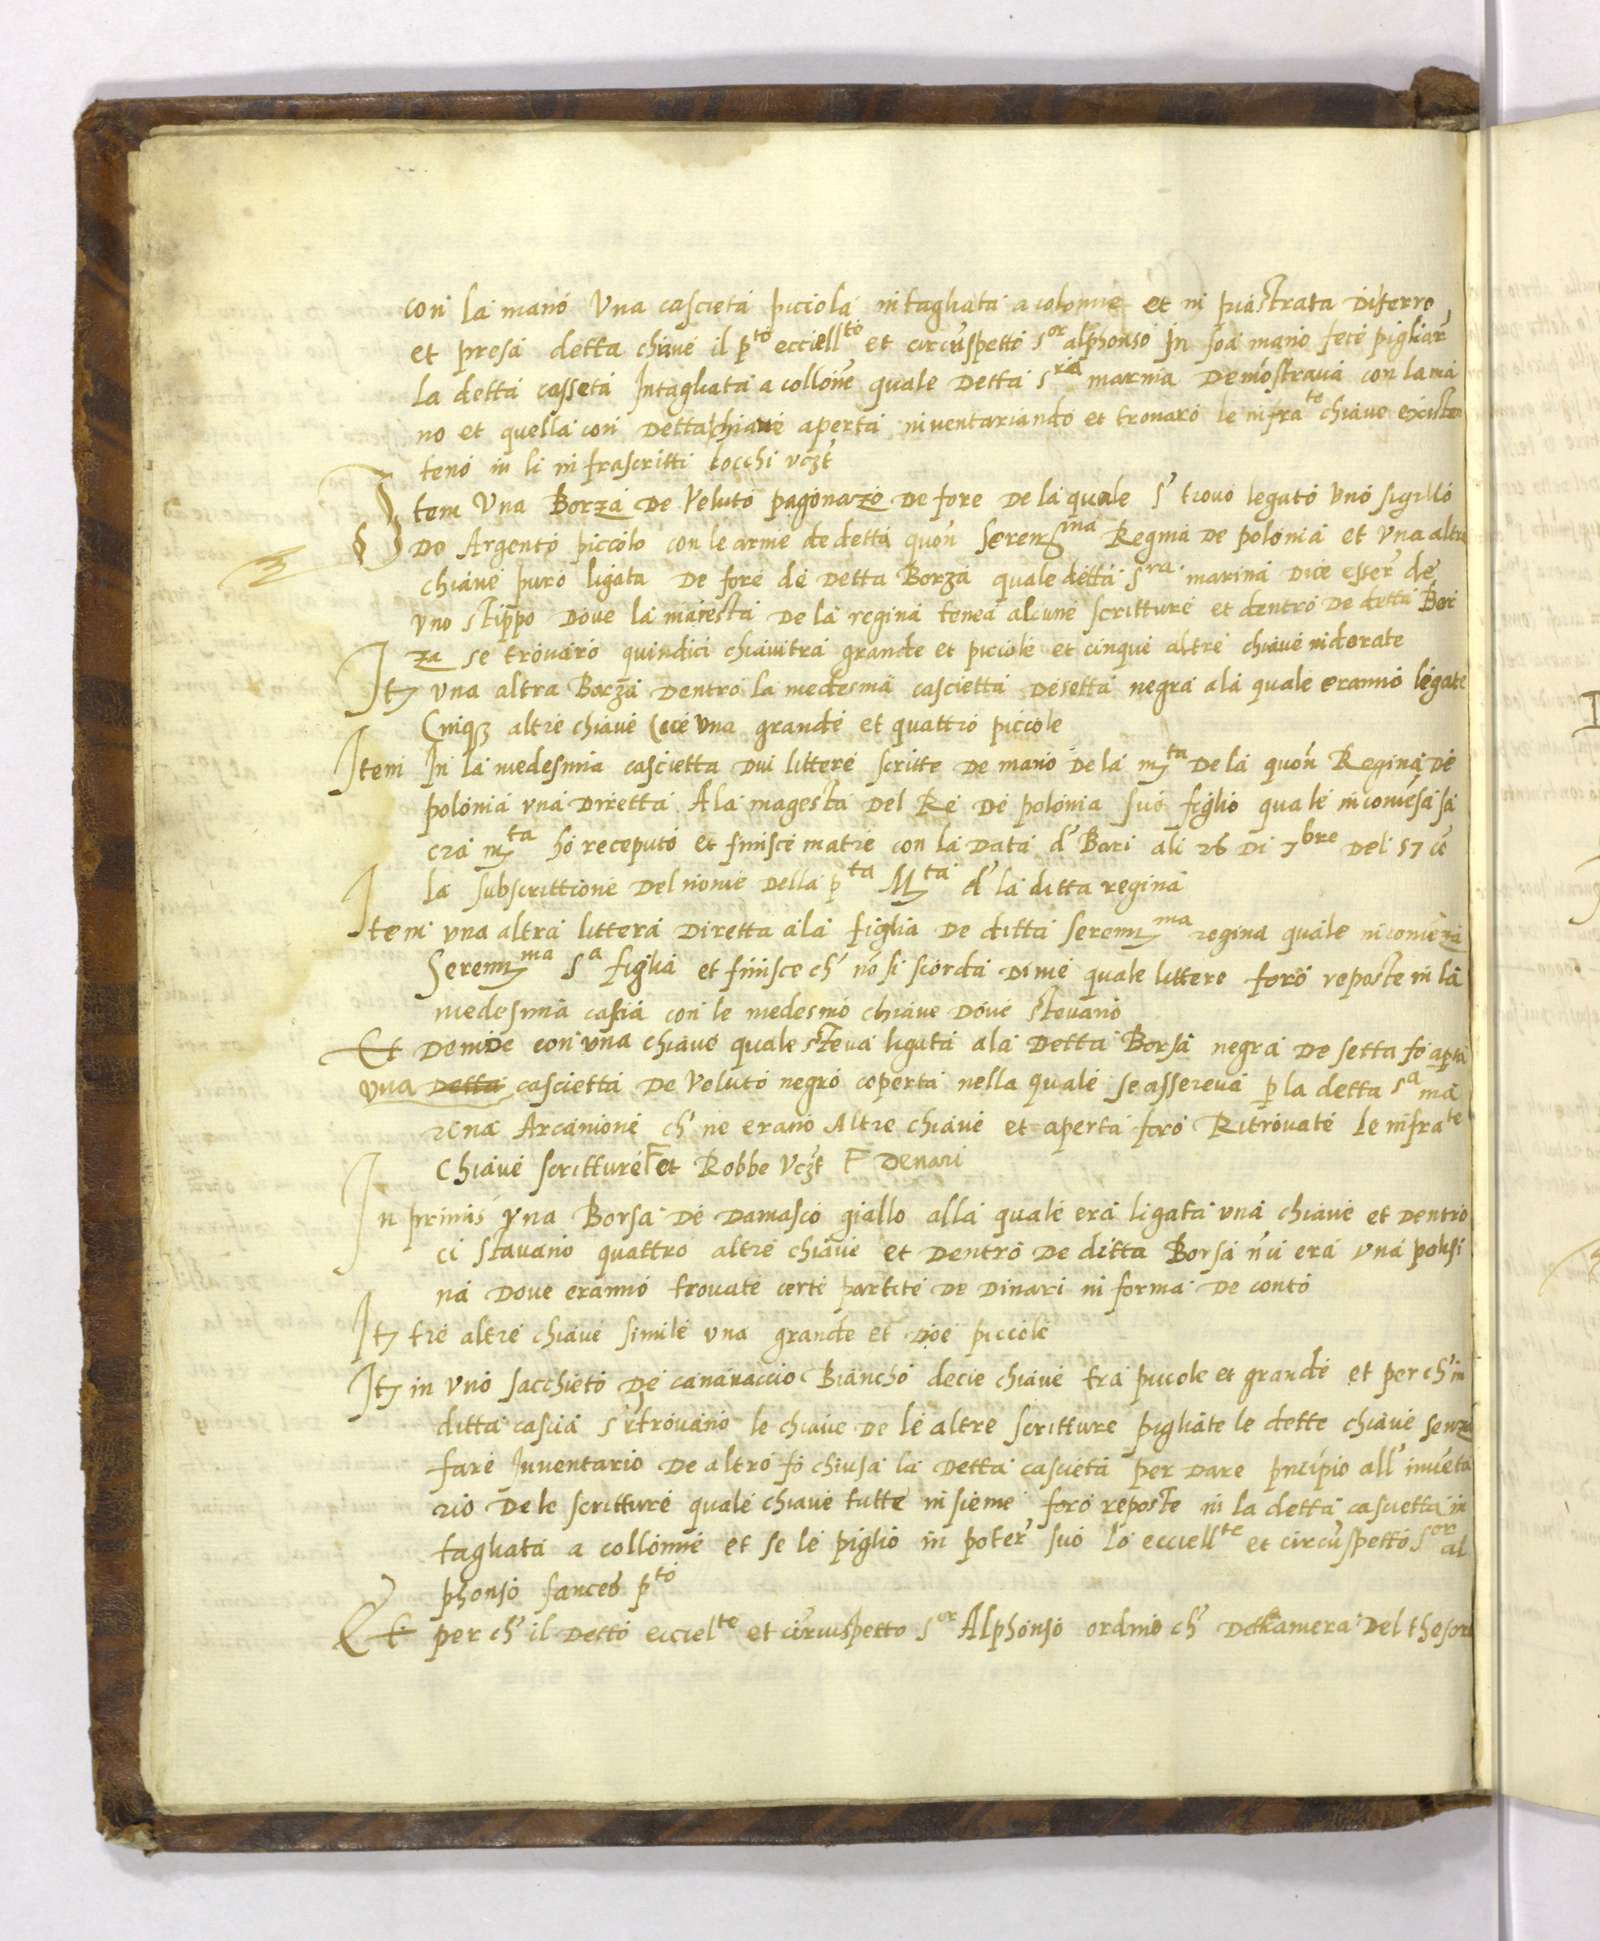 con la mano Una cascieta piciola intagliata a colonne et in piastrata di ferro
et presa detta chiave il p^to ecciell^to et circūspetto s^or alphonso in soa mano fece pigliar
La detta casseta Intagliata a collone quale Detta s^ra marina Demostrava con la ma
no et quella con Detta chiave aperta inventariando et trovaro le infra^te chiave
teno in li infrascritti locchi vczt
Item Una Borza De Veluto pagonazo De fore De la quale s' trovò legato Uno sigillo
Do Argento piccolo con le arme de detta quon̄ Seren^ma Regina De polonia et Una altra
chiave puro ligata De fore de Detta Borza quale detta s^ra marina Dice esser de
Uno stippo Dove la maiestà De la regina tenea alcune scritture et dentro De detta Bor
za se trovaro quindici chiavi tra grande et piciole et cinque altre chiave indorate
Itᷓ Una altra Borza Dentro la medesma cascietta De setta negra ala quale eranno legate
Cinqꝫ altre chiave cioè Una grande et quattro piccole
Item In la medesma cascietta Dui littere scritte De mano De la m^ta De la quon̄ Regina De
polonia una Diretta Ala magestà Del Re De polonia suo figlio quale incomēsa sa
cra m^ta hò receputo et finisce matre con la Data d' Bari ali 26 Di 7^bre Del 57 cō
la subscrittione Del nome Della p^ta M^ta d' la ditta regina
Item una altra littera Diretta ala figlia De ditta Seren^ma regina quale incomēza
Seren^ma s^a figlia et finisce ch' nō si scorda Di me quale littere foro reposte in la
medesma casia con le medesmo chiave Dove stevano
Et Demde con una chiave quale steva ligata ala Detta Borsa negra De setta fo ap̄ta
Una Detta cascietta De Veluto negro coperta nella quale se assereva p̄ la detta s^a ma
rina Arcamone ch' ne erano Altre chiave et aperta foro Ritrovate Le infra^te
Chiave scritture F et Robbe vczt F Denari
In primis Una Borsa De Damasco giallo alla quale era ligata una chiave et Dentro
ci stavano quattro altre chiave et Dentro De ditta Borsa n'ci era Una polisi
na Dove eranno trovate certe partite De Dinari in forma De conto
Itᷓ tre altre chiave simile Una grande et Doe piccole
Itᷓ in Uno sacchieto De canavaccio Biancho decie chiave tra piccole et grande et per ch' in
ditta casia s' ritrovano le chiave De le altre scritture pigliate le dette chiave senza
fare Inventario De altro fo chiusa la Detta cascieta per Dare principio all' invēta
rio De le scritture quale chiave tutte insieme foro reposte in la detta cascietta in
tagliata a collonne et se le piglio in poter suo Lo eccell^te et circūspetto s^or al
phonso sances p^to
Et per ch' il Detto ecciel^te et circūspetto s^or Alphonso ordinò ch' Dela camera Del thesoro